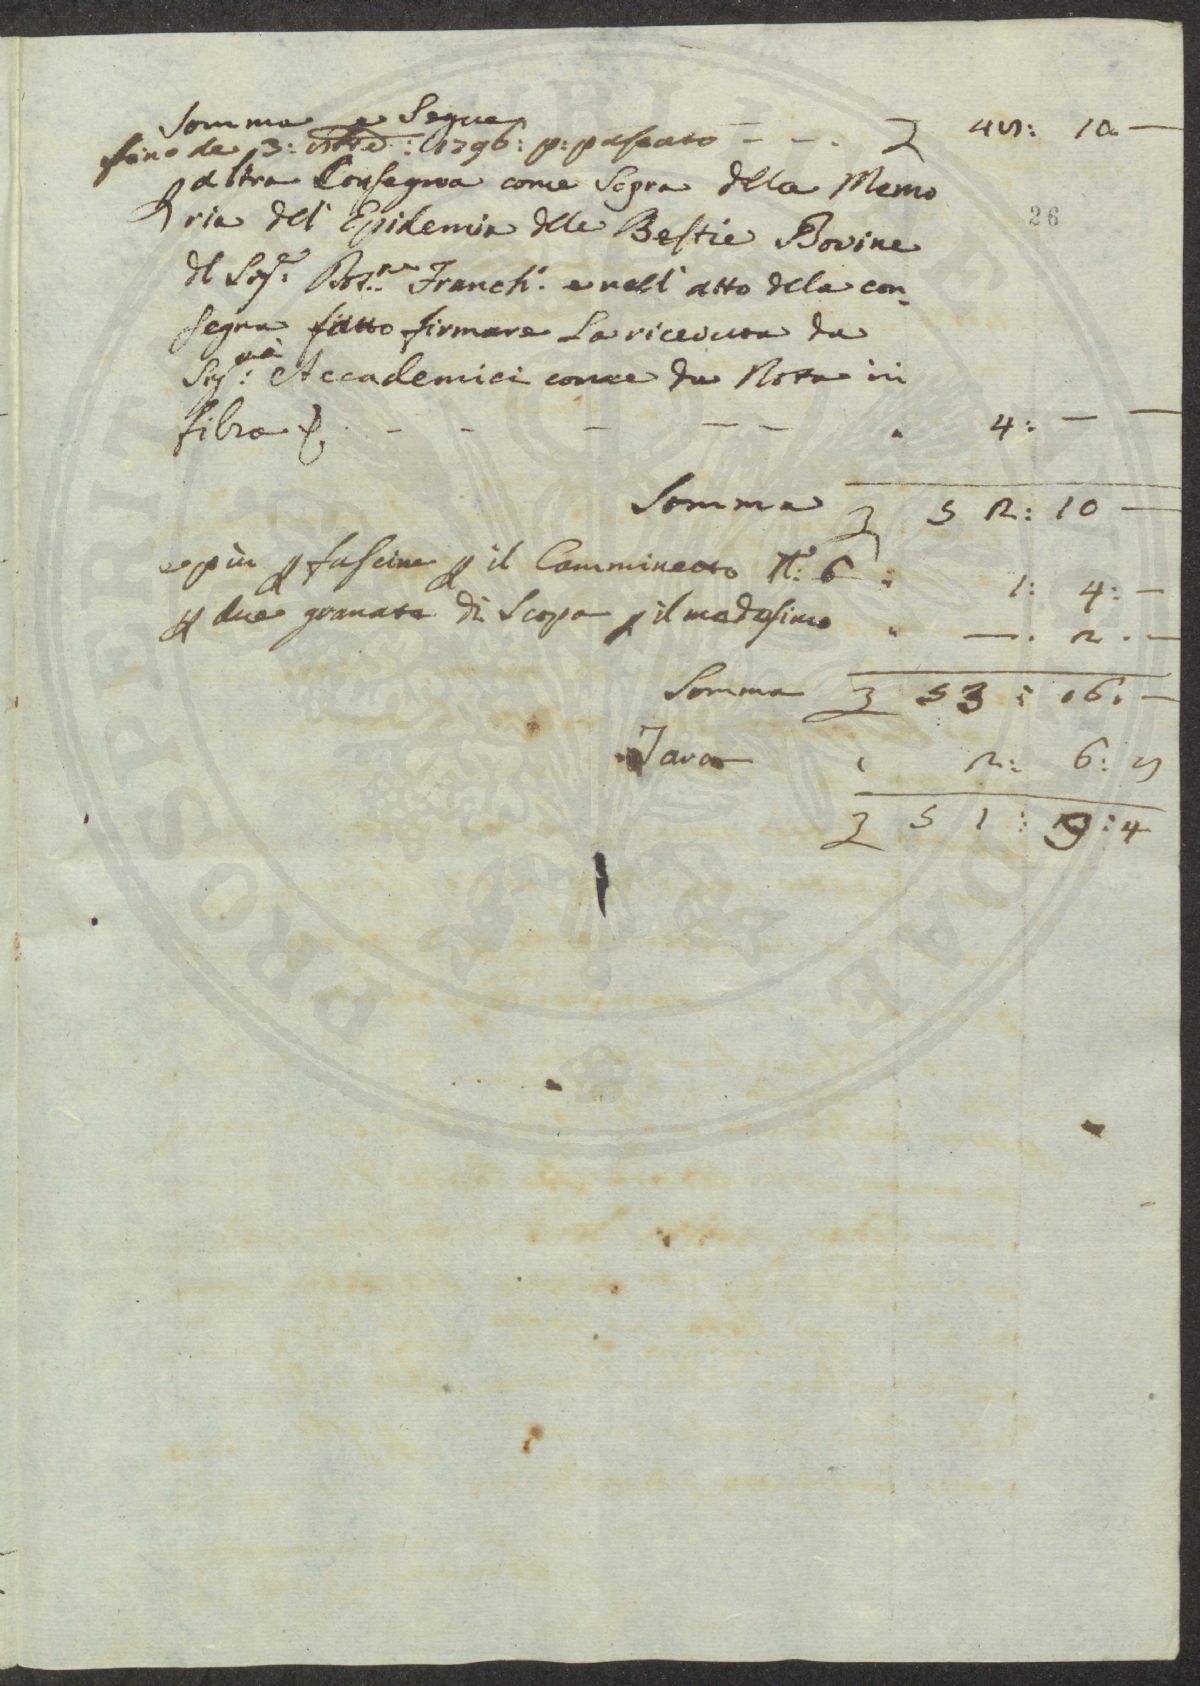 Somma e Segue
fino de 3: : 1796: p: passato - - - 48: 10 —
altra Consegna come Sopra della Memo
ria dell' Epidemia delle Bestie Bovine
del Sig.r Franch. e nell' atto della con-
segna fatto firmare La ricevuta da
Sig.ri Accademici come da Nota in
filza - - - - - 4: — —
26
Somma 52: 10 —
e più p fascine p il Camminetto N.o 6 1: 4: —
p due granate di Scopa p il medesimo — . 2 . —
Somma 53: 16. —
Tara 2: 6: 8
51: 9: 4